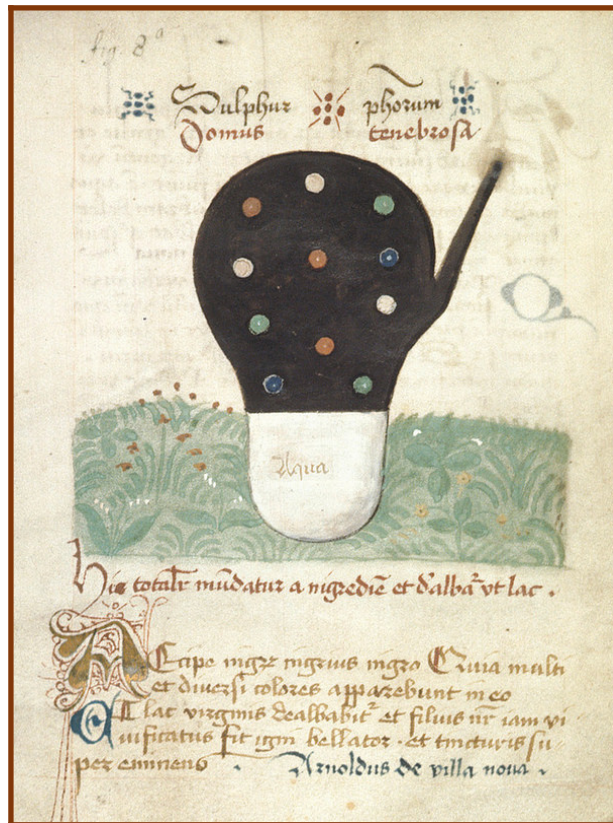 fig. 8ª
Sulphur phorum
Domus tenebrosa
Aqua
Hic totalr mūdatur a nigrediē et dalbar̃ vt lac .
Accipe nigrū nigrius nigro Quia multi
et diversi colores apparebunt in eo
Et lac virginis dealbabitr̃ et filius nr̃ iam vi
vificatus fit igni bellator . et tincturis su-
per eminens . Arnoldus de villa nova .